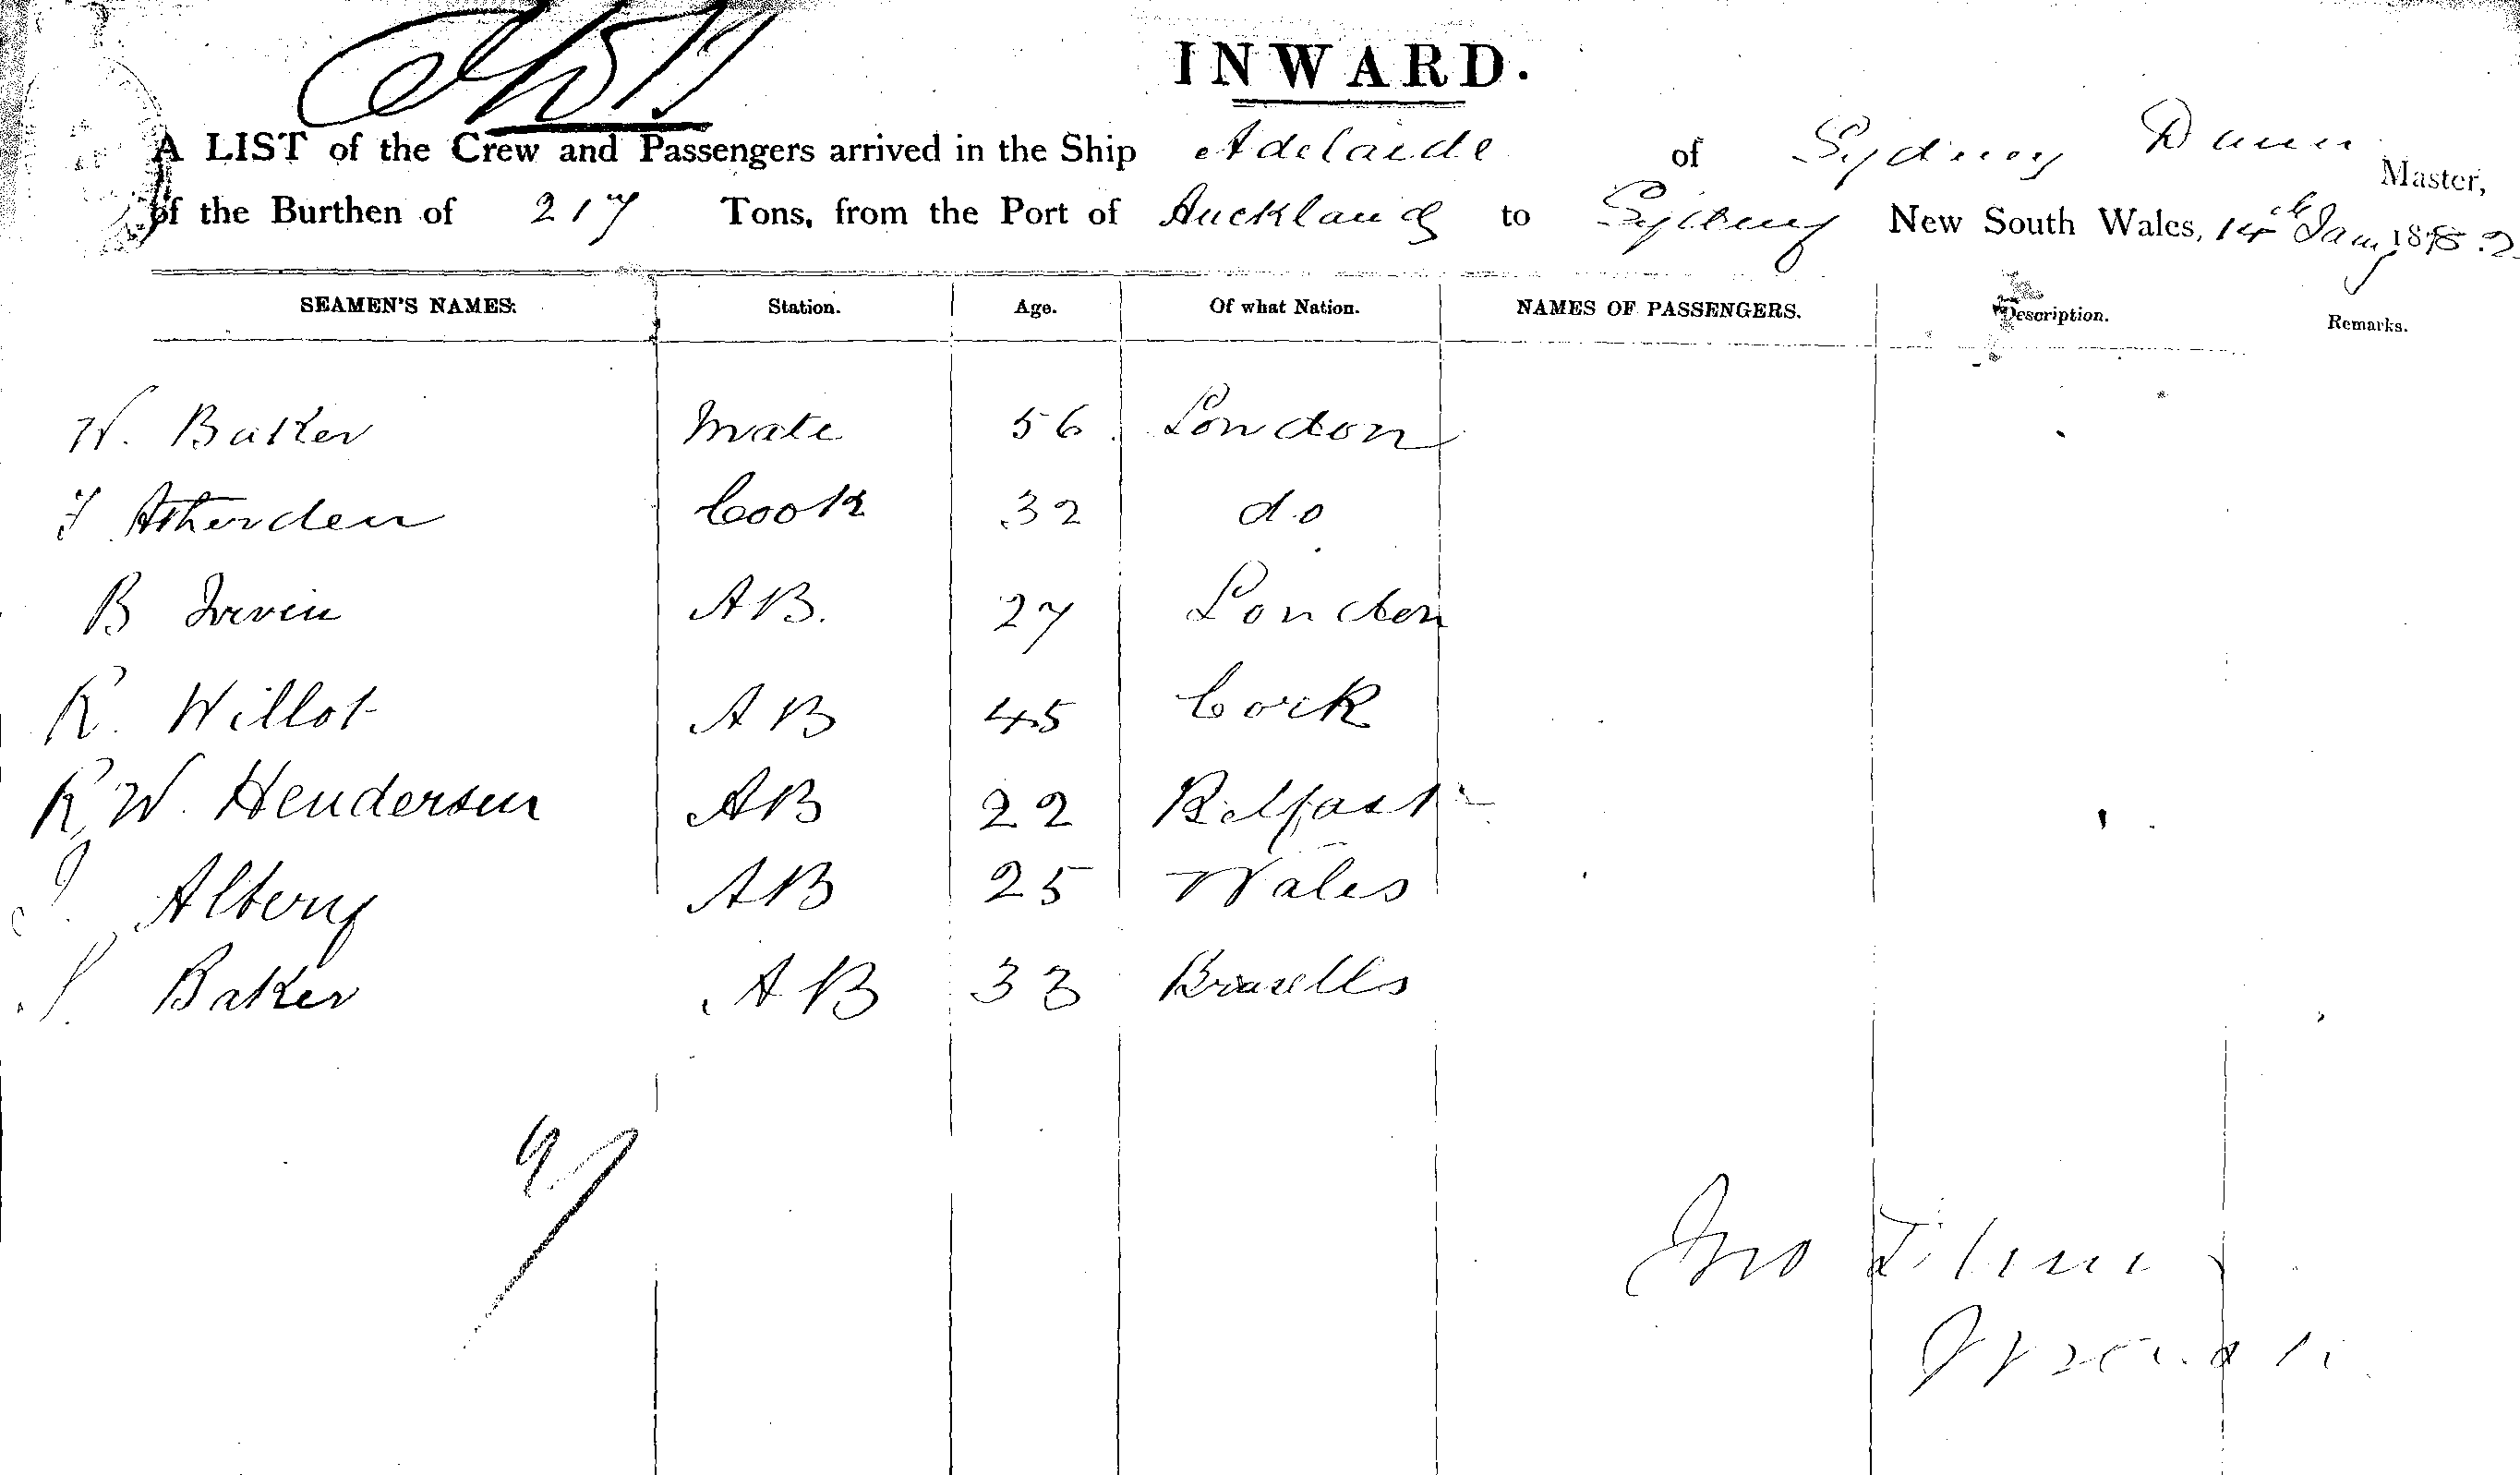 INWARD.
A LIST of the Crew and Passengers arrived in the Ship Adelaide of Sydney Dunn Master,
of the Burthen of 217 Tons, from the Port of Auckland to Sydney New South Wales, 14th Jany 1882
SEAMEN'S NAMES. Station. Age. Of what Nation. NAMES OF PASSENGERS. Description. Remarks.
W. Baker Mate 56 London
Atherden Cook 32 do
B Irvin AB. 27 London
R. Willot AB 45 Cork
R. W. Henderson AB 22 Belfast
J. Albery AB 25 Wales
Baker AB 33 Brusells
Jno